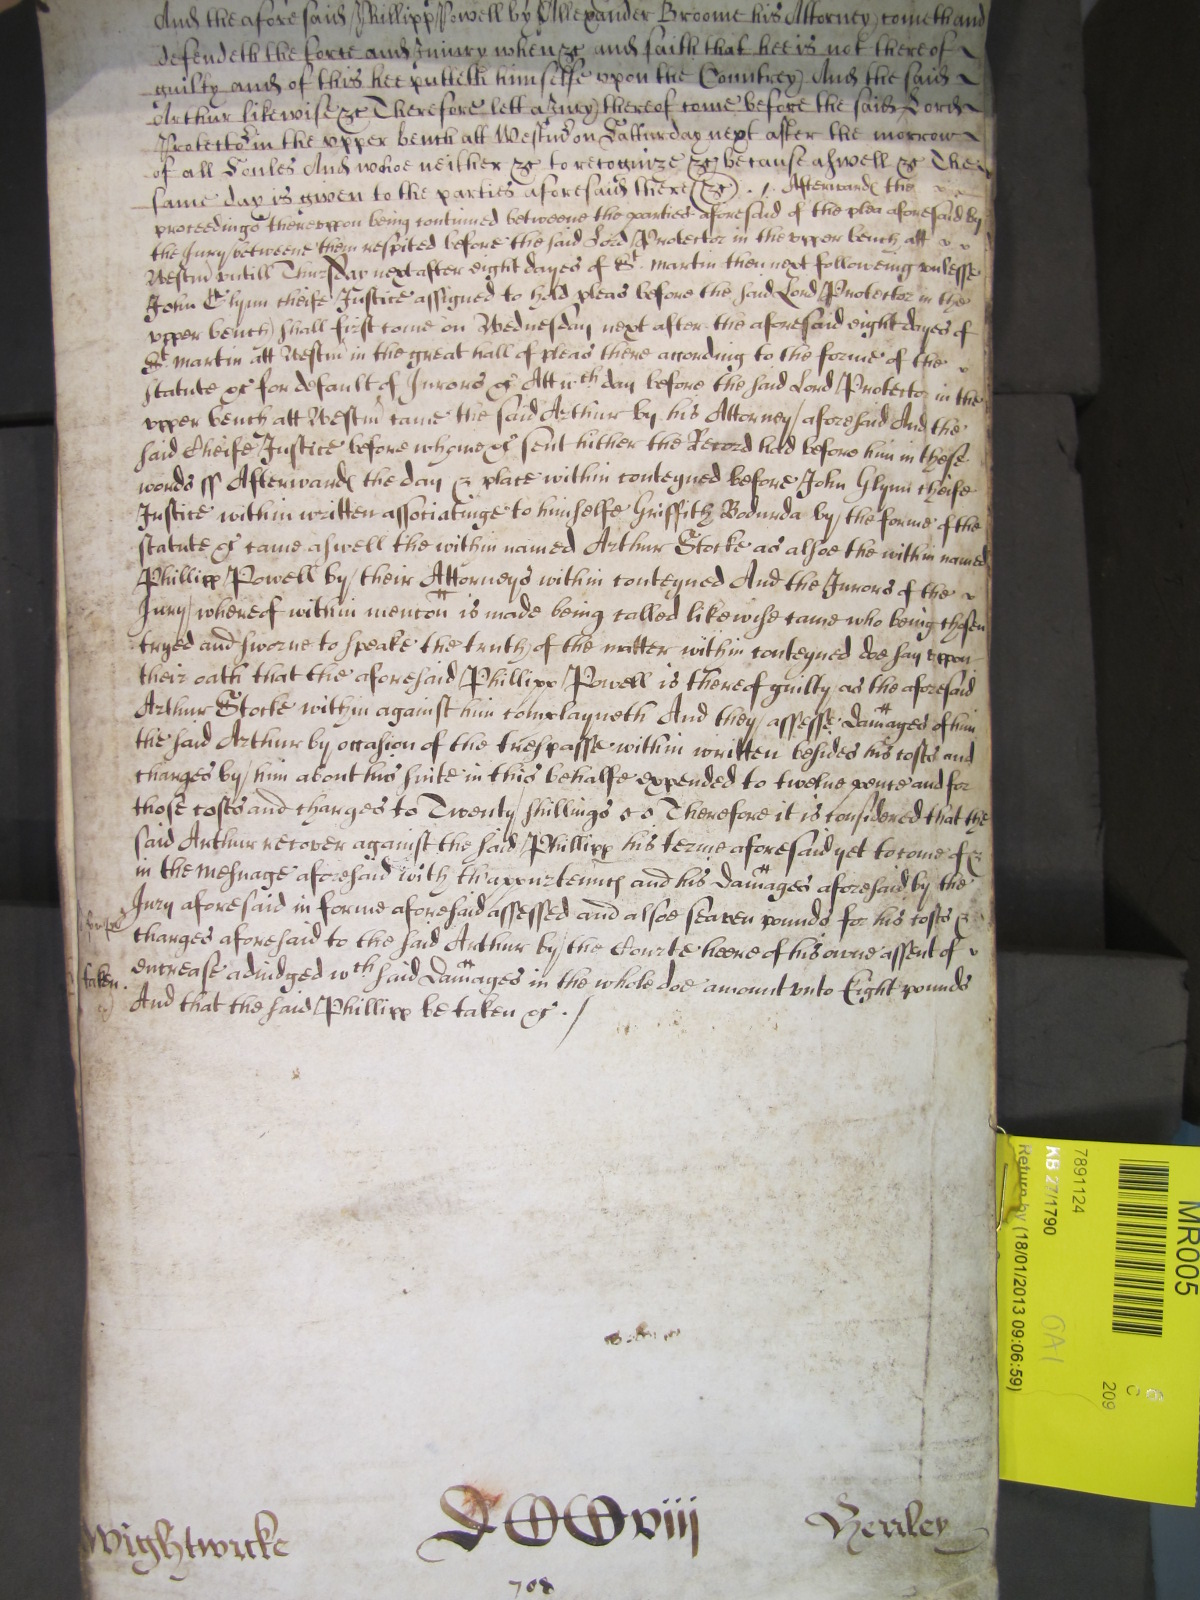 And the aforesaid Phillipp Powell by Allexander Broome his Attorney cometh and
defendeth the force and Iniury when &c and saith that hee is not thereof
guilty and of this hee putteth himselfe vpon the Countrey And the said
Arthur likewise &c Therefore lett a Iury thereof come before the said Lord
Protector in the vpper bench att Westm on Satturday next after the morrow
of all Soules And whoe neither &c to recognize &c because aswell &c The
same day is given to the parties aforesaid there &c . / . Afterwards the
proceedings therevppon being continued betweene the parties aforesaid of the plea aforesaid by
the Iury betweene them respited before the said Lord Protector in the vpper bench att
Westm vntill Thursday next after eight dayes of St. Martin then next followeing vnlesse
John Glynn cheife Justice assigned to hold pleas before the said Lord Protector in the
vpper bench shall first come on Wednesday next after the aforesaid eight dayes of
St. Martin att Westm in the great hall of pleas there according to the forme of the
statute &c for default of Jurors &c Att wch day before the said Lord Protector in the
vpper bench att Westm came the said Arthur by his Attorney aforesaid And the
said Cheife Justice before whome &c sent hither the Record had before him in these
words ss Afterwards the day & place within conteyned before John Glynn cheife
Justice within written associatinge to himselfe Griffith Bodurda by the forme of the
statute &c came aswell the within named Arthur Stocke as alsoe the within named
Phillipp Powell by their Attorneys within conteyned And the Jurors of the
Jury whereof within mencon is made being called likewise came who being chosen
tryed and sworne to speake the truth of the matter within conteyned doe say vpon
their oath that the aforesaid Phillipp Powell is thereof guilty as the aforesaid
Arthur Stocke within against him complayneth And they assesse damages of him
the said Arthur by occasion of the trespasse within written besides his costs and
charges by him about his suite in this behalfe expended to twelve pence and for
those costs and charges to Twenty shillings Therefore it is considered that the
said Arthur recover against the said Phillipp his terme aforesaid yet to come of &
in the Mesuage aforesaid with thappurtennces and his Damages aforesaid by the
Jury aforesaid in forme aforesaid assessed and alsoe seaven pounds for his costs &
charges aforesaid to the said Arthur by the Courte heere of his owne assent of
encrease adiudged wth said Damages in the whole doe amount vnto Eight pounds
taken. And that the said Phillipp be taken &c . /
Wightwicke DCCviij Henley
708
MR005
7891124
KB 27/1790
Return by (18/01/2013 09:06:59)
209